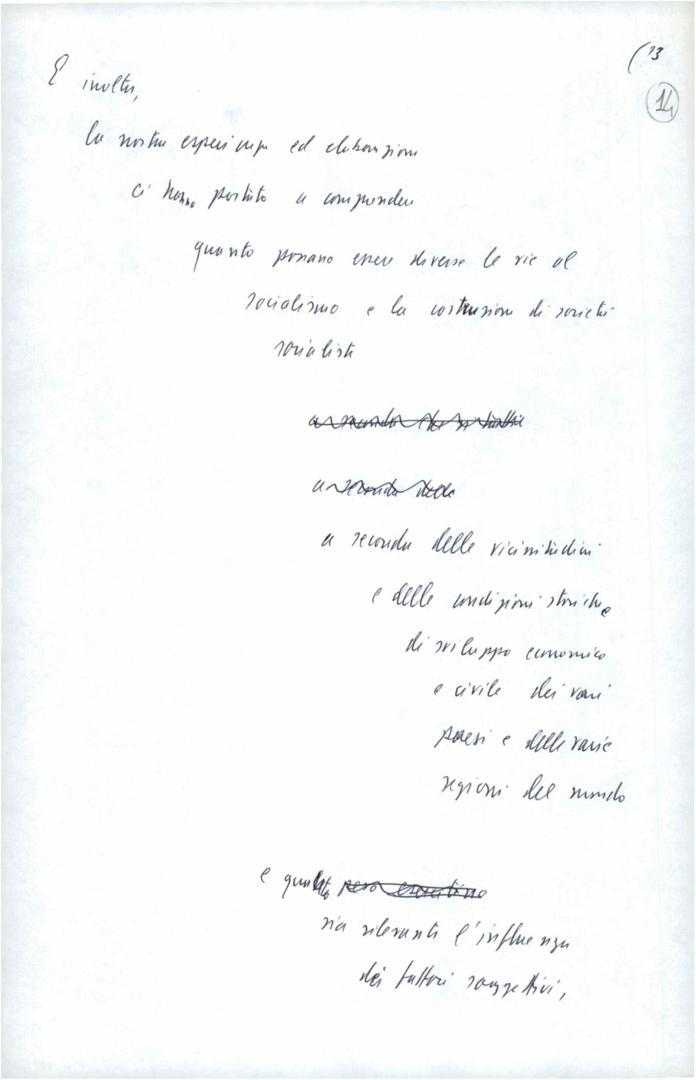 (13
14
E inoltre,
la nostra esperienza ed elaborazione
ci hanno portato a comprendere
quanto possano essere diverse le vie al
socialismo e la costruzione di società
socialiste
a seconda delle
a seconda delle vicissitudini
e delle condizioni storiche
di sviluppo economico
e civile dei vari
paesi e delle varie
regioni del mondo
e quanto
sia rilevante l'influenza
dei fattori soggettivi,